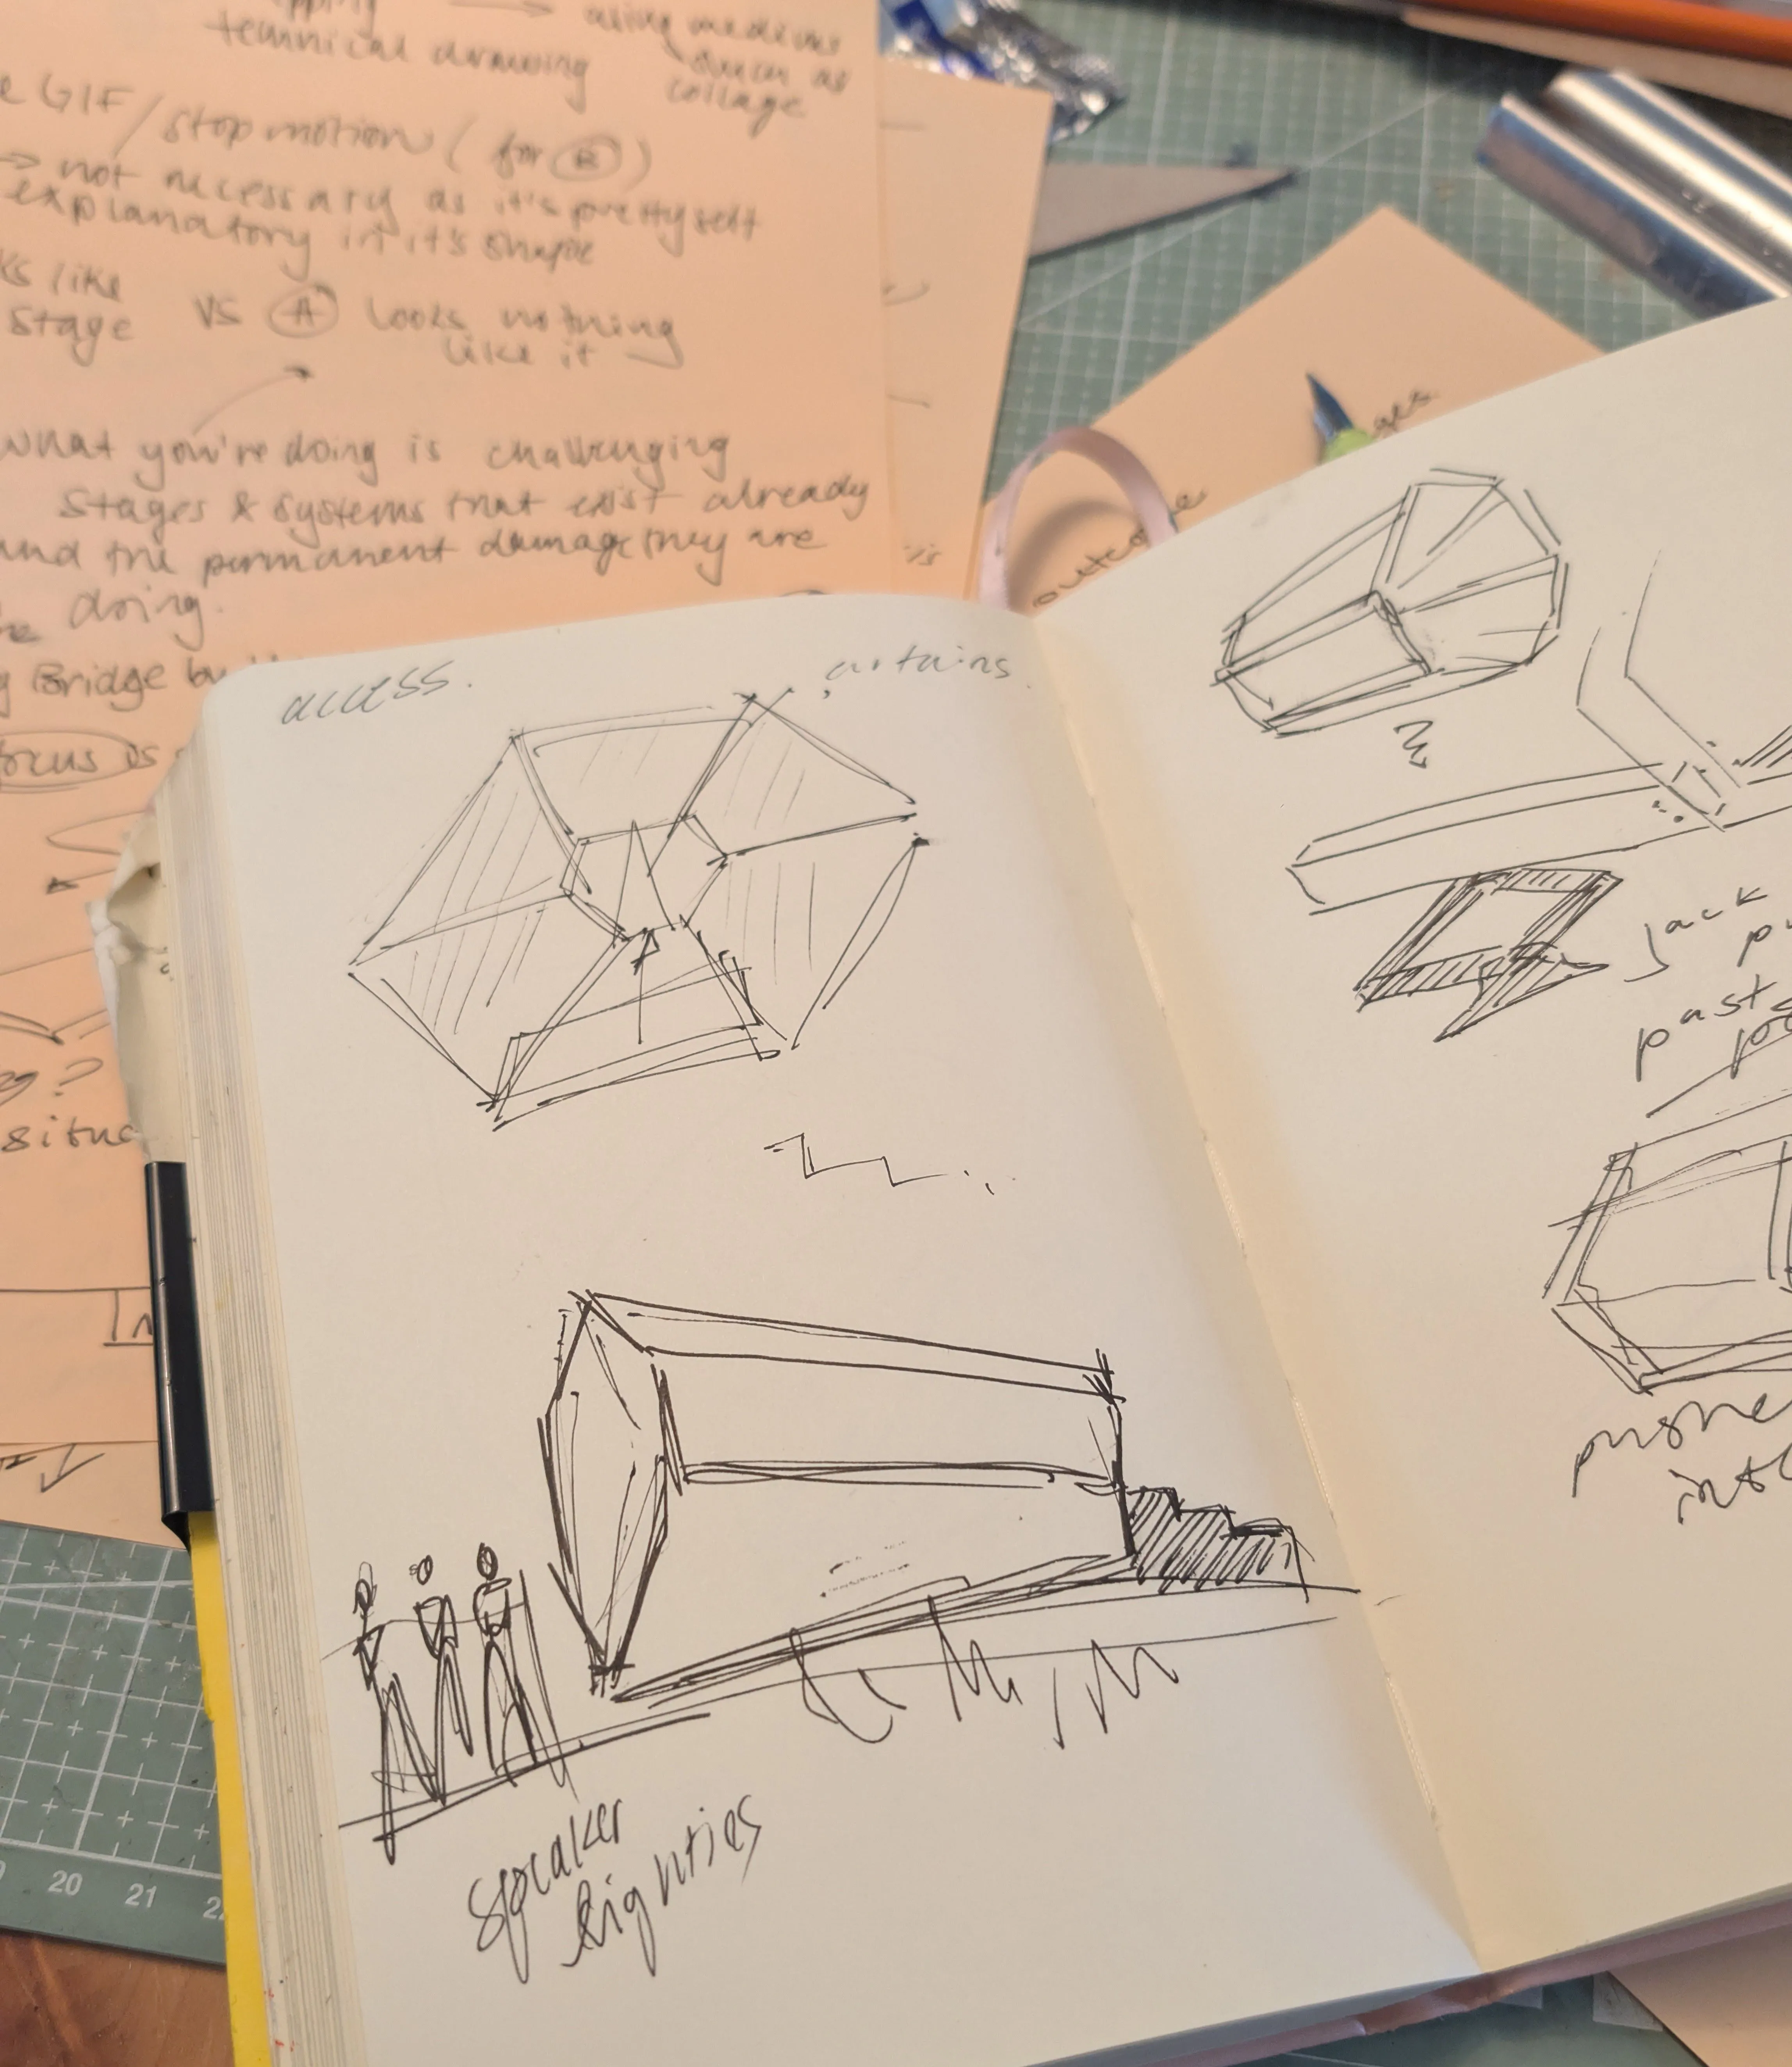 technical drawing
using mediums
such as
collage
GIF/stop motion (for B)
→ not necessary as it's pretty self
explanatory in it's shape
like
stage vs A looks nothing
like it
what you're doing is challenging
stages & systems that exist already
and the permanent damage they are
doing.
Bridge
focus is
?
situa
20 21
access.
curtains
speaker
lighties
outcome
jack
past
pushe
into